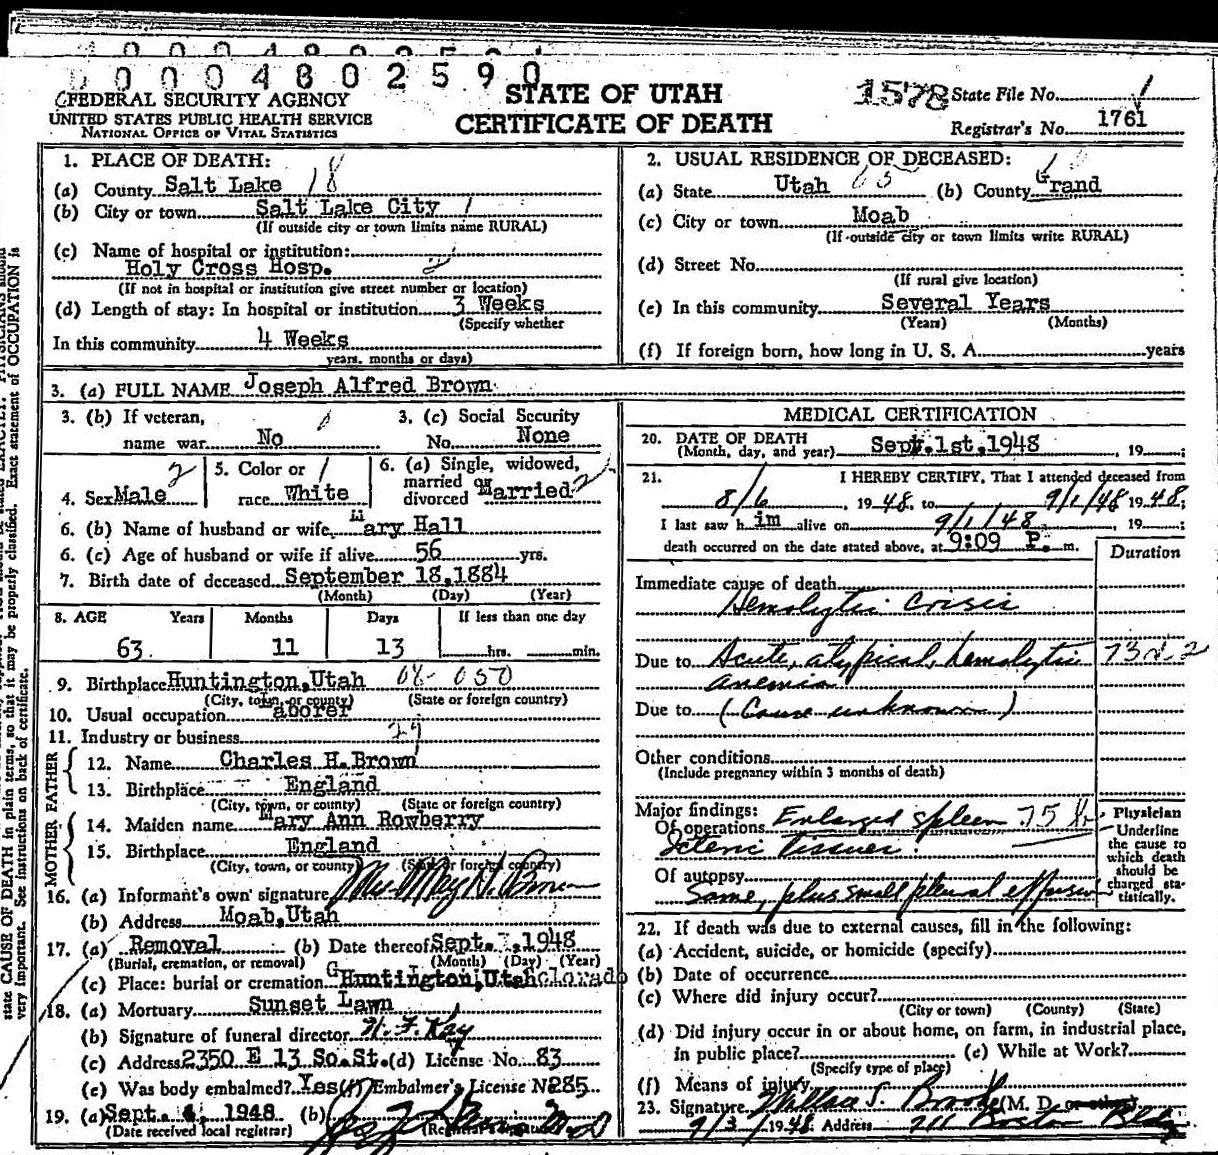 0 0 0 4 8 0 2 5 9 0
FEDERAL SECURITY AGENCY
UNITED STATES PUBLIC HEALTH SERVICE
NATIONAL OFFICE OF VITAL STATISTICS
STATE OF UTAH
CERTIFICATE OF DEATH
1578 State File No.
Registrar's No. 1761
1. PLACE OF DEATH:
(a) County Salt Lake 18
(b) City or town Salt Lake City 1
(If outside city or town limits name RURAL)
(c) Name of hospital or institution:
Holy Cross Hosp. 2
(If not in hospital or institution give street number or location)
(d) Length of stay: In hospital or institution 3 Weeks
(Specify whether
In this community 4 Weeks
years, months or days)
2. USUAL RESIDENCE OF DECEASED:
(a) State Utah 65 (b) County Grand
(c) City or town Moab
(If outside city or town limits write RURAL)
(d) Street No.
(If rural give location)
(e) In this community Several Years
(Years) (Months)
(f) If foreign born, how long in U. S. A. years
3. (a) FULL NAME Joseph Alfred Brown
3. (b) If veteran,
name war No
3. (c) Social Security
No. None
4. Sex Male 2
5. Color or
race White
6. (a) Single, widowed,
married or
divorced Married 2
6. (b) Name of husband or wife Mary Hall
6. (c) Age of husband or wife if alive 56 yrs.
7. Birth date of deceased September 18, 1884
(Month) (Day) (Year)
8. AGE Years Months Days If less than one day
63 11 13 hrs. min.
9. Birthplace Huntington, Utah 08-050
(City, town, or county) (State or foreign country)
10. Usual occupation Laborer
11. Industry or business 29
FATHER
12. Name Charles H. Brown
13. Birthplace England
(City, town, or county) (State or foreign country)
MOTHER
14. Maiden name Mary Ann Rowberry
15. Birthplace England
(City, town, or county) (State or foreign country)
16. (a) Informant's own signature Mrs. May H. Brown
(b) Address Moab, Utah
17. (a) Removal (b) Date thereof Sept. ,1948
(Burial, cremation, or removal) (Month) (Day) (Year)
(c) Place: burial or cremation Huntington, Utah Colorado
18. (a) Mortuary Sunset Lawn
(b) Signature of funeral director H. F. Kay
(c) Address 2350 E 13 So. St. (d) License No. 83
(e) Was body embalmed? Yes (f) Embalmer's License No 285
19. (a) Sept. 4, 1948 (b)
(Date received local registrar) (Registrar's signature) M D
MEDICAL CERTIFICATION
20. DATE OF DEATH
(Month, day, and year) Sept. 1st, 1948 , 19 ;
21. I HEREBY CERTIFY, That I attended deceased from
8/6 , 1948, to 9/1/48 1948.
I last saw h im alive on 9/1/48 , 19 ;
death occurred on the date stated above, at 9:09 P. m.
Duration
Immediate cause of death
Hemolytic Crisis
Due to Acute, atypical, hemolytic 73d.2
anemia
Due to (Cause unknown)
Other conditions
(Include pregnancy within 3 months of death)
Major findings:
Of operations Enlarged spleen 75
Icteric tissues.
Of autopsy
Same, plus small pleural effusion
Physician
Underline
the cause to
which death
should be
charged sta-
tistically.
22. If death was due to external causes, fill in the following:
(a) Accident, suicide, or homicide (specify)
(b) Date of occurrence
(c) Where did injury occur?
(City or town) (County) (State)
(d) Did injury occur in or about home, on farm, in industrial place,
in public place? (e) While at Work?
(Specify type of place)
(f) Means of injury
23. Signature S. (M. D. or other)
9/3/ 1948 Address 711 Boston Bldg
state CAUSE OF DEATH in plain terms, so that it may be properly classified. Exact statement of OCCUPATION is
very important. See instructions on back of certificate.